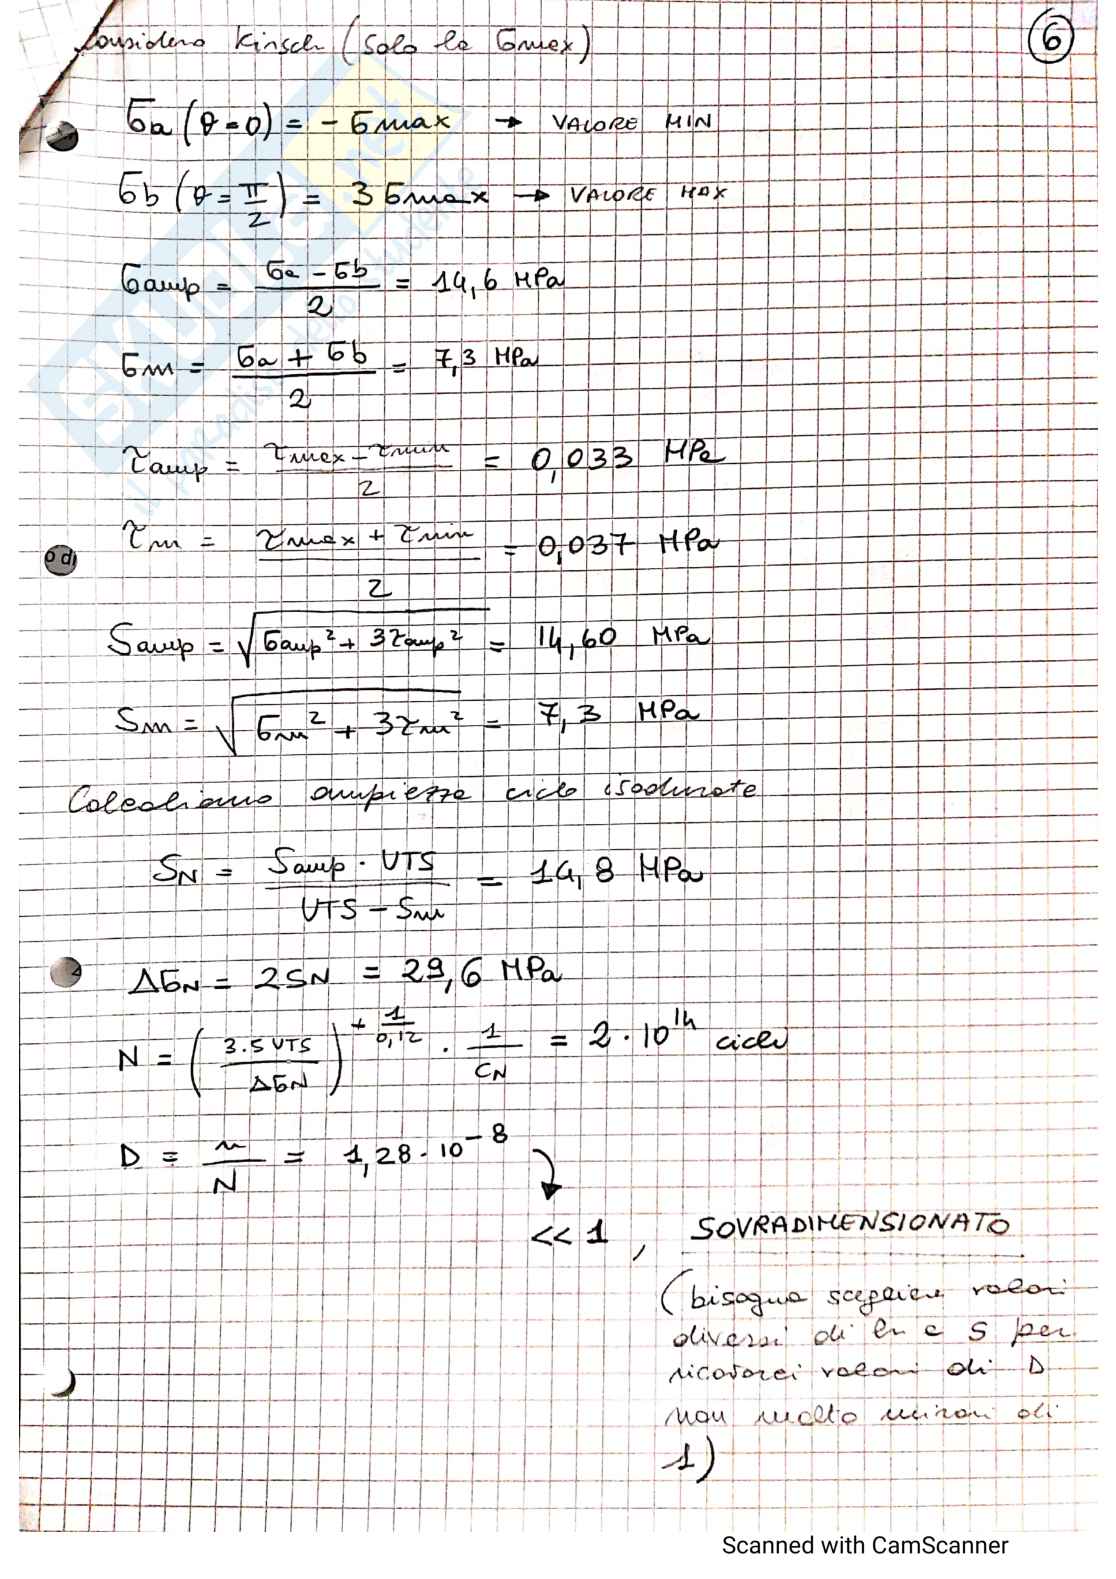 Considero Kirsch (Solo la σmax)
6
σa (θ=0) = - σmax → VALORE MIN
σb (θ=π/2) = 3 σmax → VALORE MAX
σamp = (σa - σb)/2 = 14,6 MPa
σm = (σa + σb)/2 = 7,3 MPa
τamp = (τmax - τmin)/2 = 0,033 MPa
τm = (τmax + τmin)/2 = 0,037 MPa
Samp = √(σamp² + 3τamp²) = 14,60 MPa
Sm = √(σm² + 3τm²) = 7,3 MPa
Calcoliamo ampiezza ciclo isodurate
SN = (Samp · UTS)/(UTS - Sm) = 14,8 MPa
ΔσN = 2SN = 29,6 MPa
N = (3.5 UTS/ΔσN)^(+1/0,12) · 1/CN = 2 · 10^14 cicli
D = n/N = 1,28 · 10^-8
<< 1, SOVRADIMENSIONATO
(bisogna scegliere valori
diversi di ln e S per
ricavarci valori di D
non molto minori di
1)
SKUOLA.net
il paradiso dello studente
Scanned with CamScanner